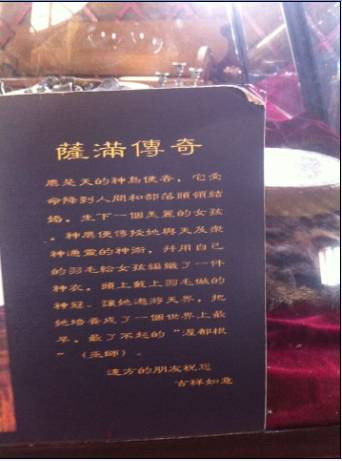 薩滿傳奇
鷹是天的神鳥使者，它受
命降到人間和部落頭領結
婚，生下一個美麗的女孩
，神鷹便傳授她與天及衆
神通靈的神術，并用自已
的羽毛給女孩編織了一件
神衣，頭上戴上羽毛做的
神冠，讓她遨游天界，把
她培養成了一個世界上最
早，最了不起的“渥都根
”（巫師）．
遠方的朋友祝您
吉祥如意